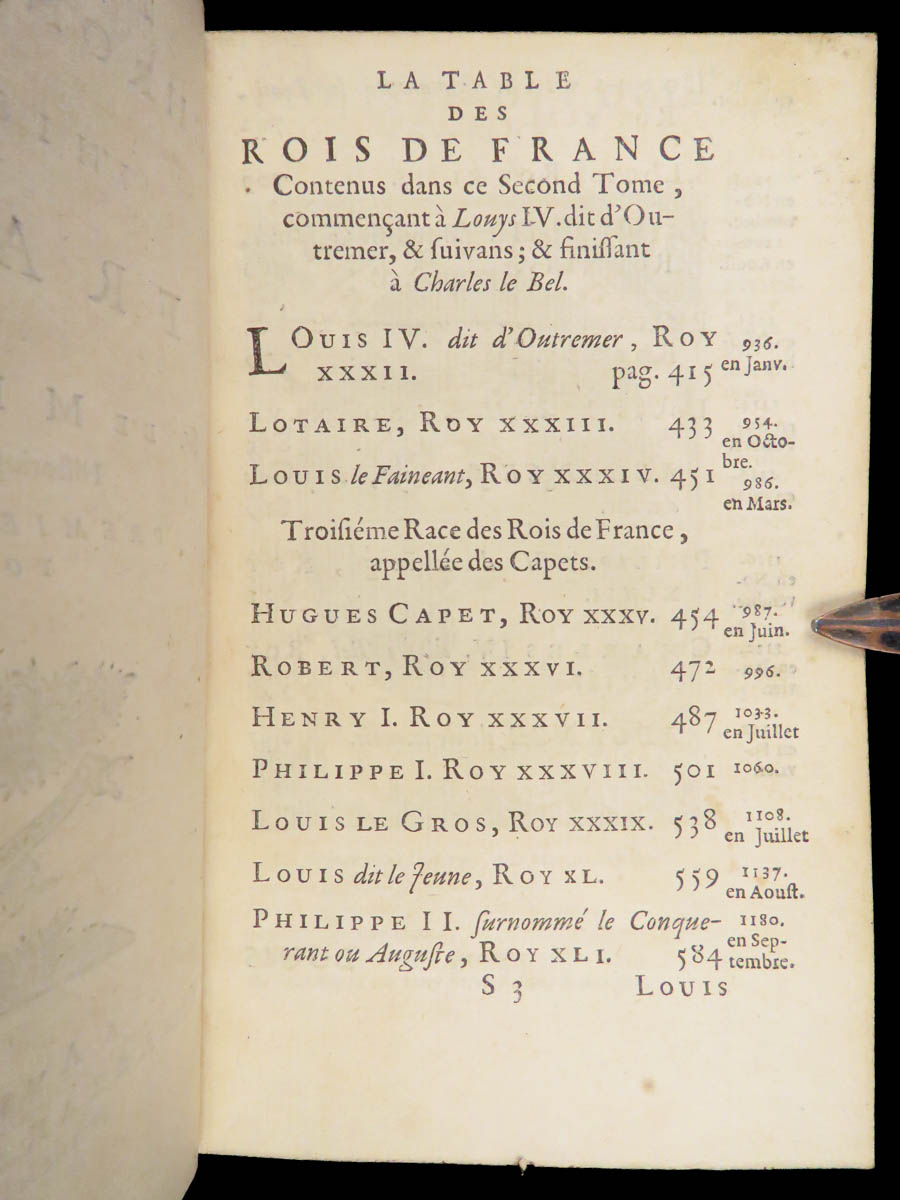 LA TABLE
DES
ROIS DE FRANCE
Contenus dans ce Second Tome,
commençant à Louys IV. dit d'Ou-
tremer, & ſuivans; & finiſſant
à Charles le Bel.
LOUIS IV. dit d'Outremer, ROY 936.
XXXII. pag. 415 en Janv.
LOTAIRE, ROY XXXIII. 433 954.
en Octo-
bre.
LOUIS le Faineant, ROY XXXIV. 451 986.
en Mars.
Troiſiéme Race des Rois de France,
appellée des Capets.
HUGUES CAPET, ROY XXXV. 454 987.
en Juin.
ROBERT, ROY XXXVI. 472 996.
HENRY I. ROY XXXVII. 487 1033.
en Juillet
PHILIPPE I. ROY XXXVIII. 501 1060.
LOUIS LE GROS, ROY XXXIX. 538 1108.
en Juillet
LOUIS dit le Jeune, ROY XL. 559 1137.
en Aouſt.
PHILIPPE II. ſurnommé le Conque- 1180.
rant ou Auguſte, ROY XLI. 584 en Sep-
tembre.
S 3 LOUIS